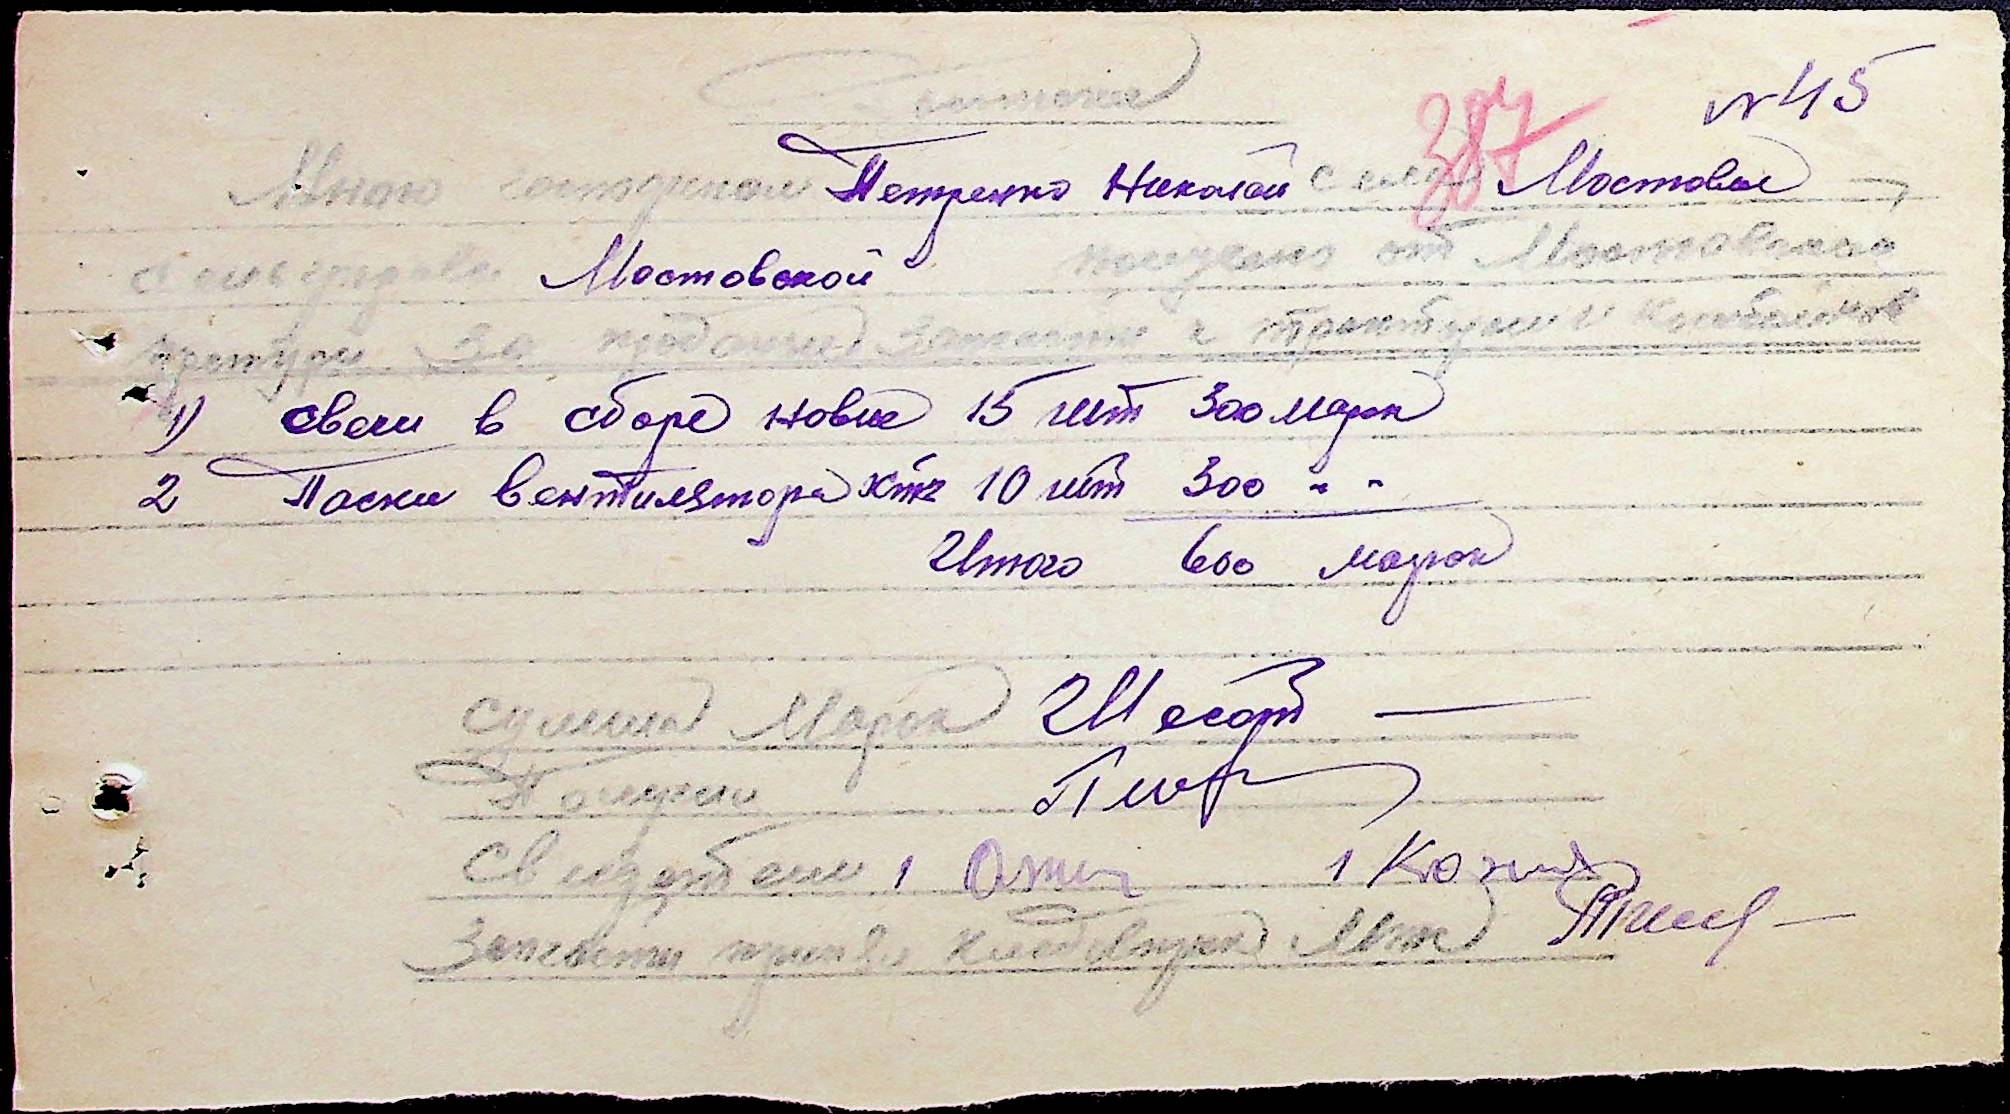 Расписка
387
№ 45
Мною гастодином Петренко Николай села Мостовое
Сельуправы Мостовской получено от Мостовского
за проданные запчасти к тракторам и комбайнов
1) свечи в сборе новые 15 шт 300 марк
2 Паски вентилятора хтз 10 шт 300 " "
Итого 600 марок
Сумма Марок Шесот —
Получил
Свидетели 1 1
Запчасти принял кладовщик Мтс